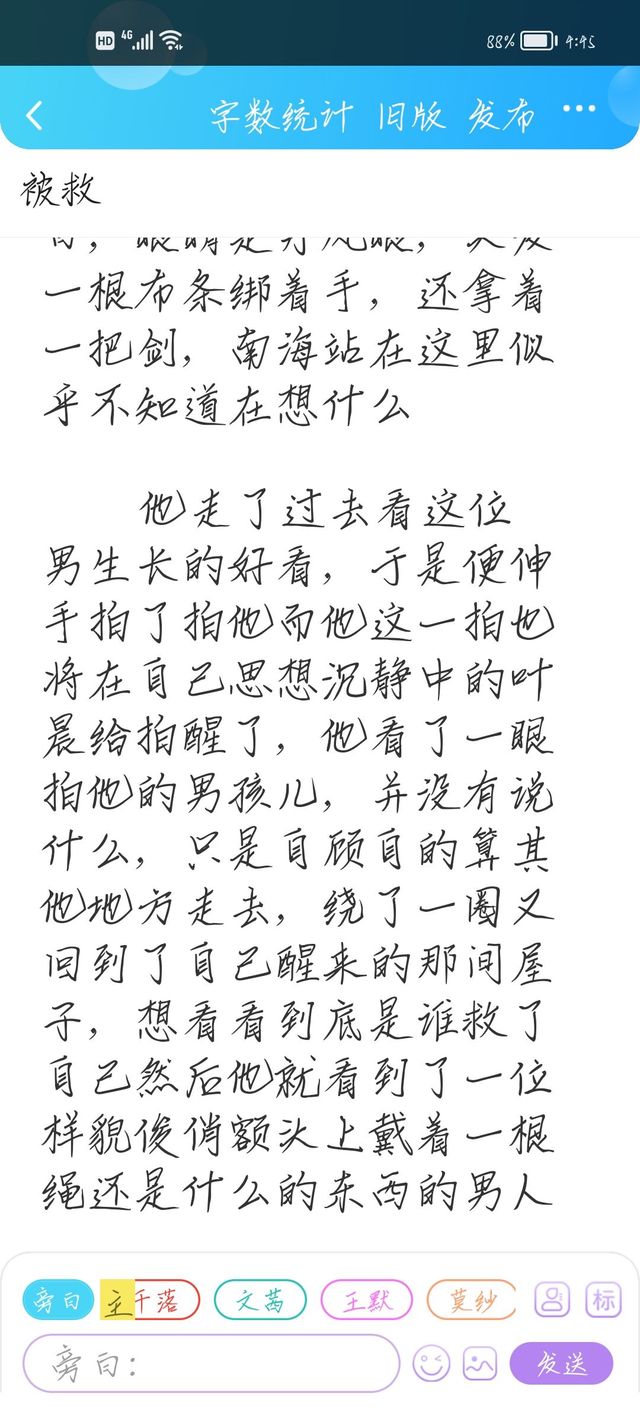 HD 4G 88% 4:45
字数统计 旧版 发布 ...
被救
一根布条绑着手，还拿着
一把剑，南海站在这里似
乎不知道在想什么
他走了过去看这位
男生长的好看，于是便伸
手拍了拍他而他这一拍也
将在自己思想沉静中的叶
晨给拍醒了，他看了一眼
拍他的男孩儿，并没有说
什么，只是自顾自的算其
他地方走去，绕了一圈又
回到了自己醒来的那间屋
子，想看看到底是谁救了
自己然后他就看到了一位
样貌俊俏额头上戴着一根
绳还是什么的东西的男人
旁白 主千落 文茜 王默 莫纱 标
旁白： 发送